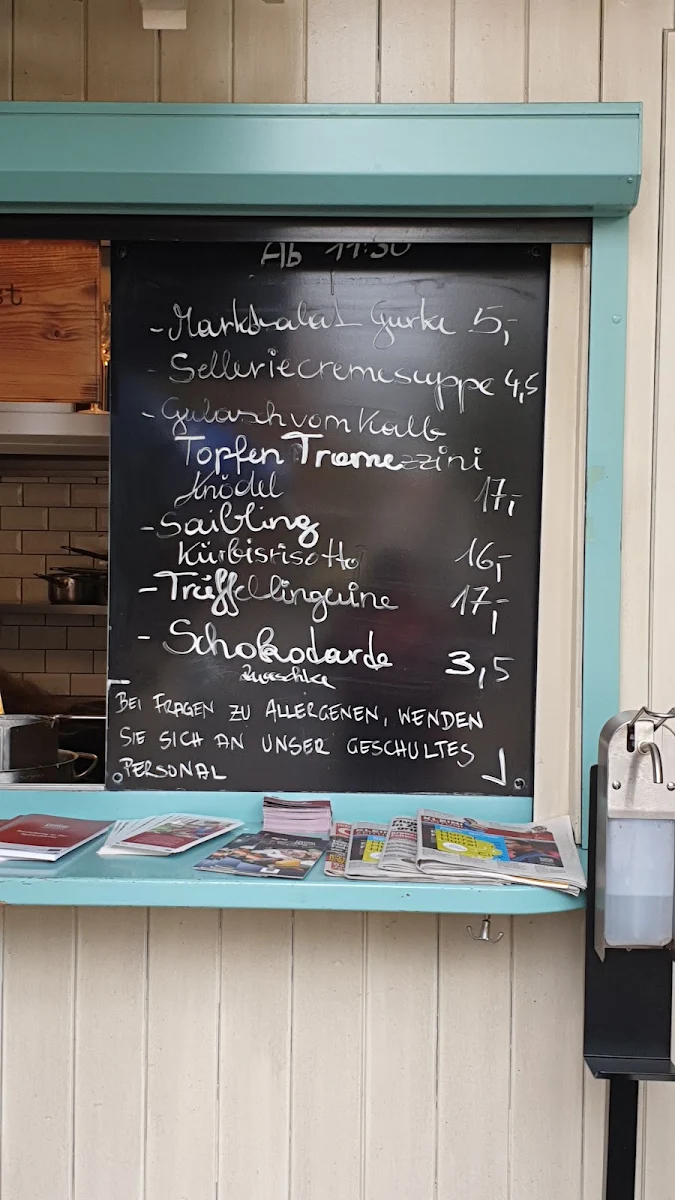 st
Ab 11:30
- Marktsalat Gurke 5,-
- Selleriecremesuppe 4,5
- Gulasch vom Kalb
Topfen Tramezzini
Knödel 17,-
- Saibling
Kürbisrisotto 16,-
- Trüffellinguine 17,-
- Schokodarde 3,5
Zwetschke
BEI FRAGEN ZU ALLERGENEN, WENDEN
SIE SICH AN UNSER GESCHULTES
PERSONAL